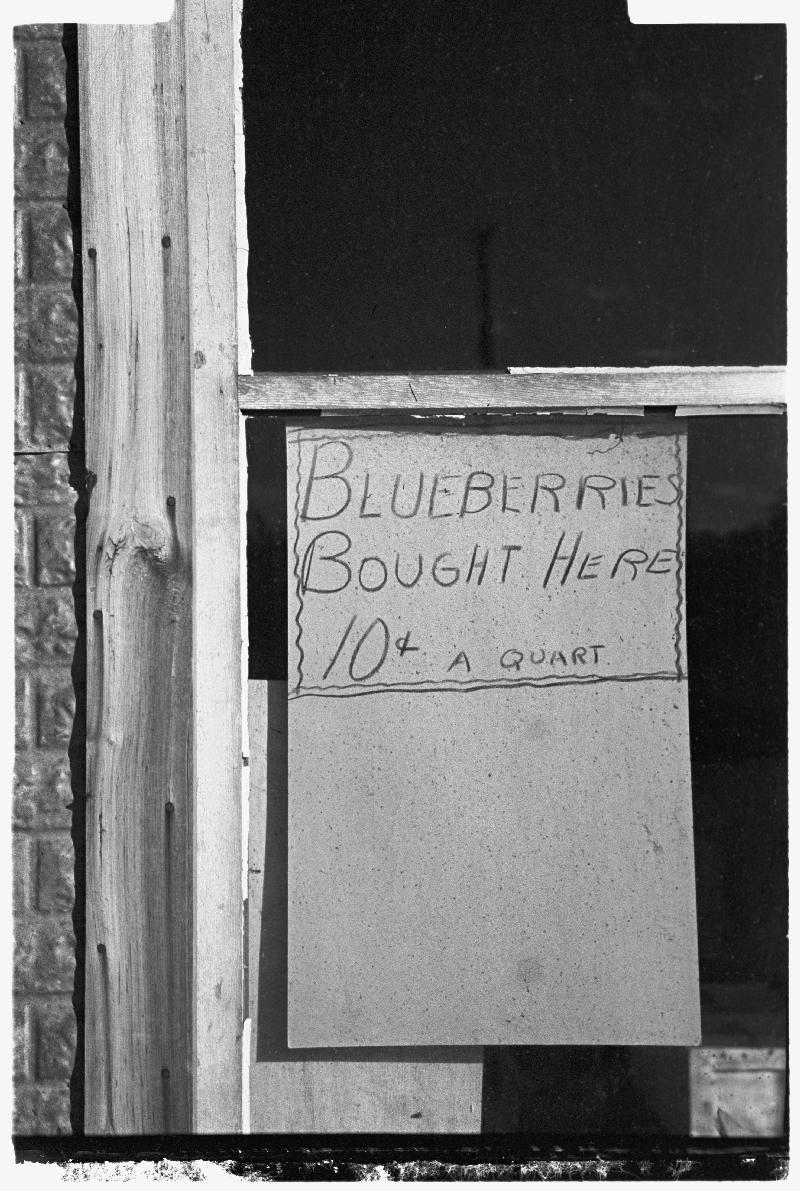 BLUEBERRIES
BOUGHT HERE
10¢ A QUART